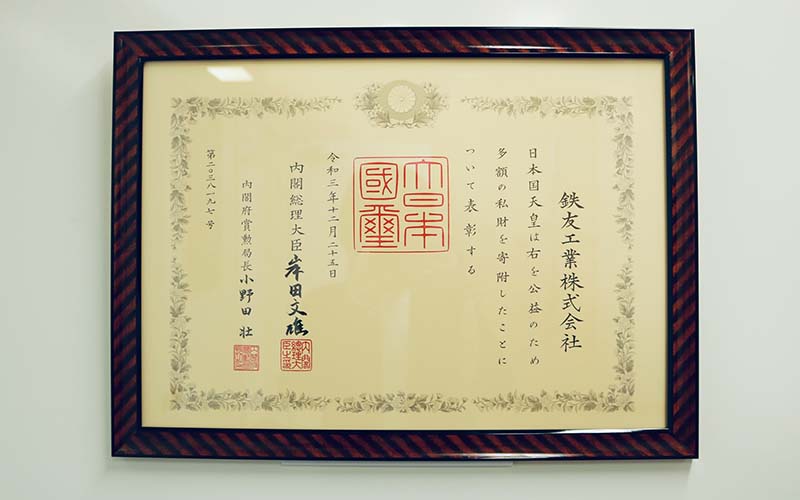 鉄友工業株式会社
日本国天皇は右を公益のため
多額の私財を寄附したことに
ついて表彰する
大日本
國璽
令和三年十二月二十五日
内閣総理大臣 岸田文雄
内閣総理大臣之印
内閣府賞勲局長 小野田 壮
第二〇三八一九七号